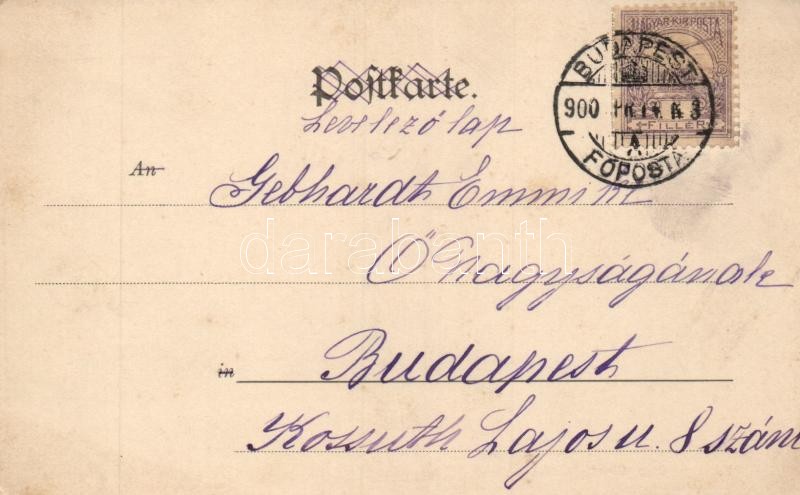 MAGYAR KIR. POSTA
BUDAPEST
900
FŐPOSTA
FILLÉR
Postkarte.
Levelező lap
An
Gebhardt Emmi
Ő nagyságának
in
Budapest
Kossuth Lajos u. 8 szám
darabanth